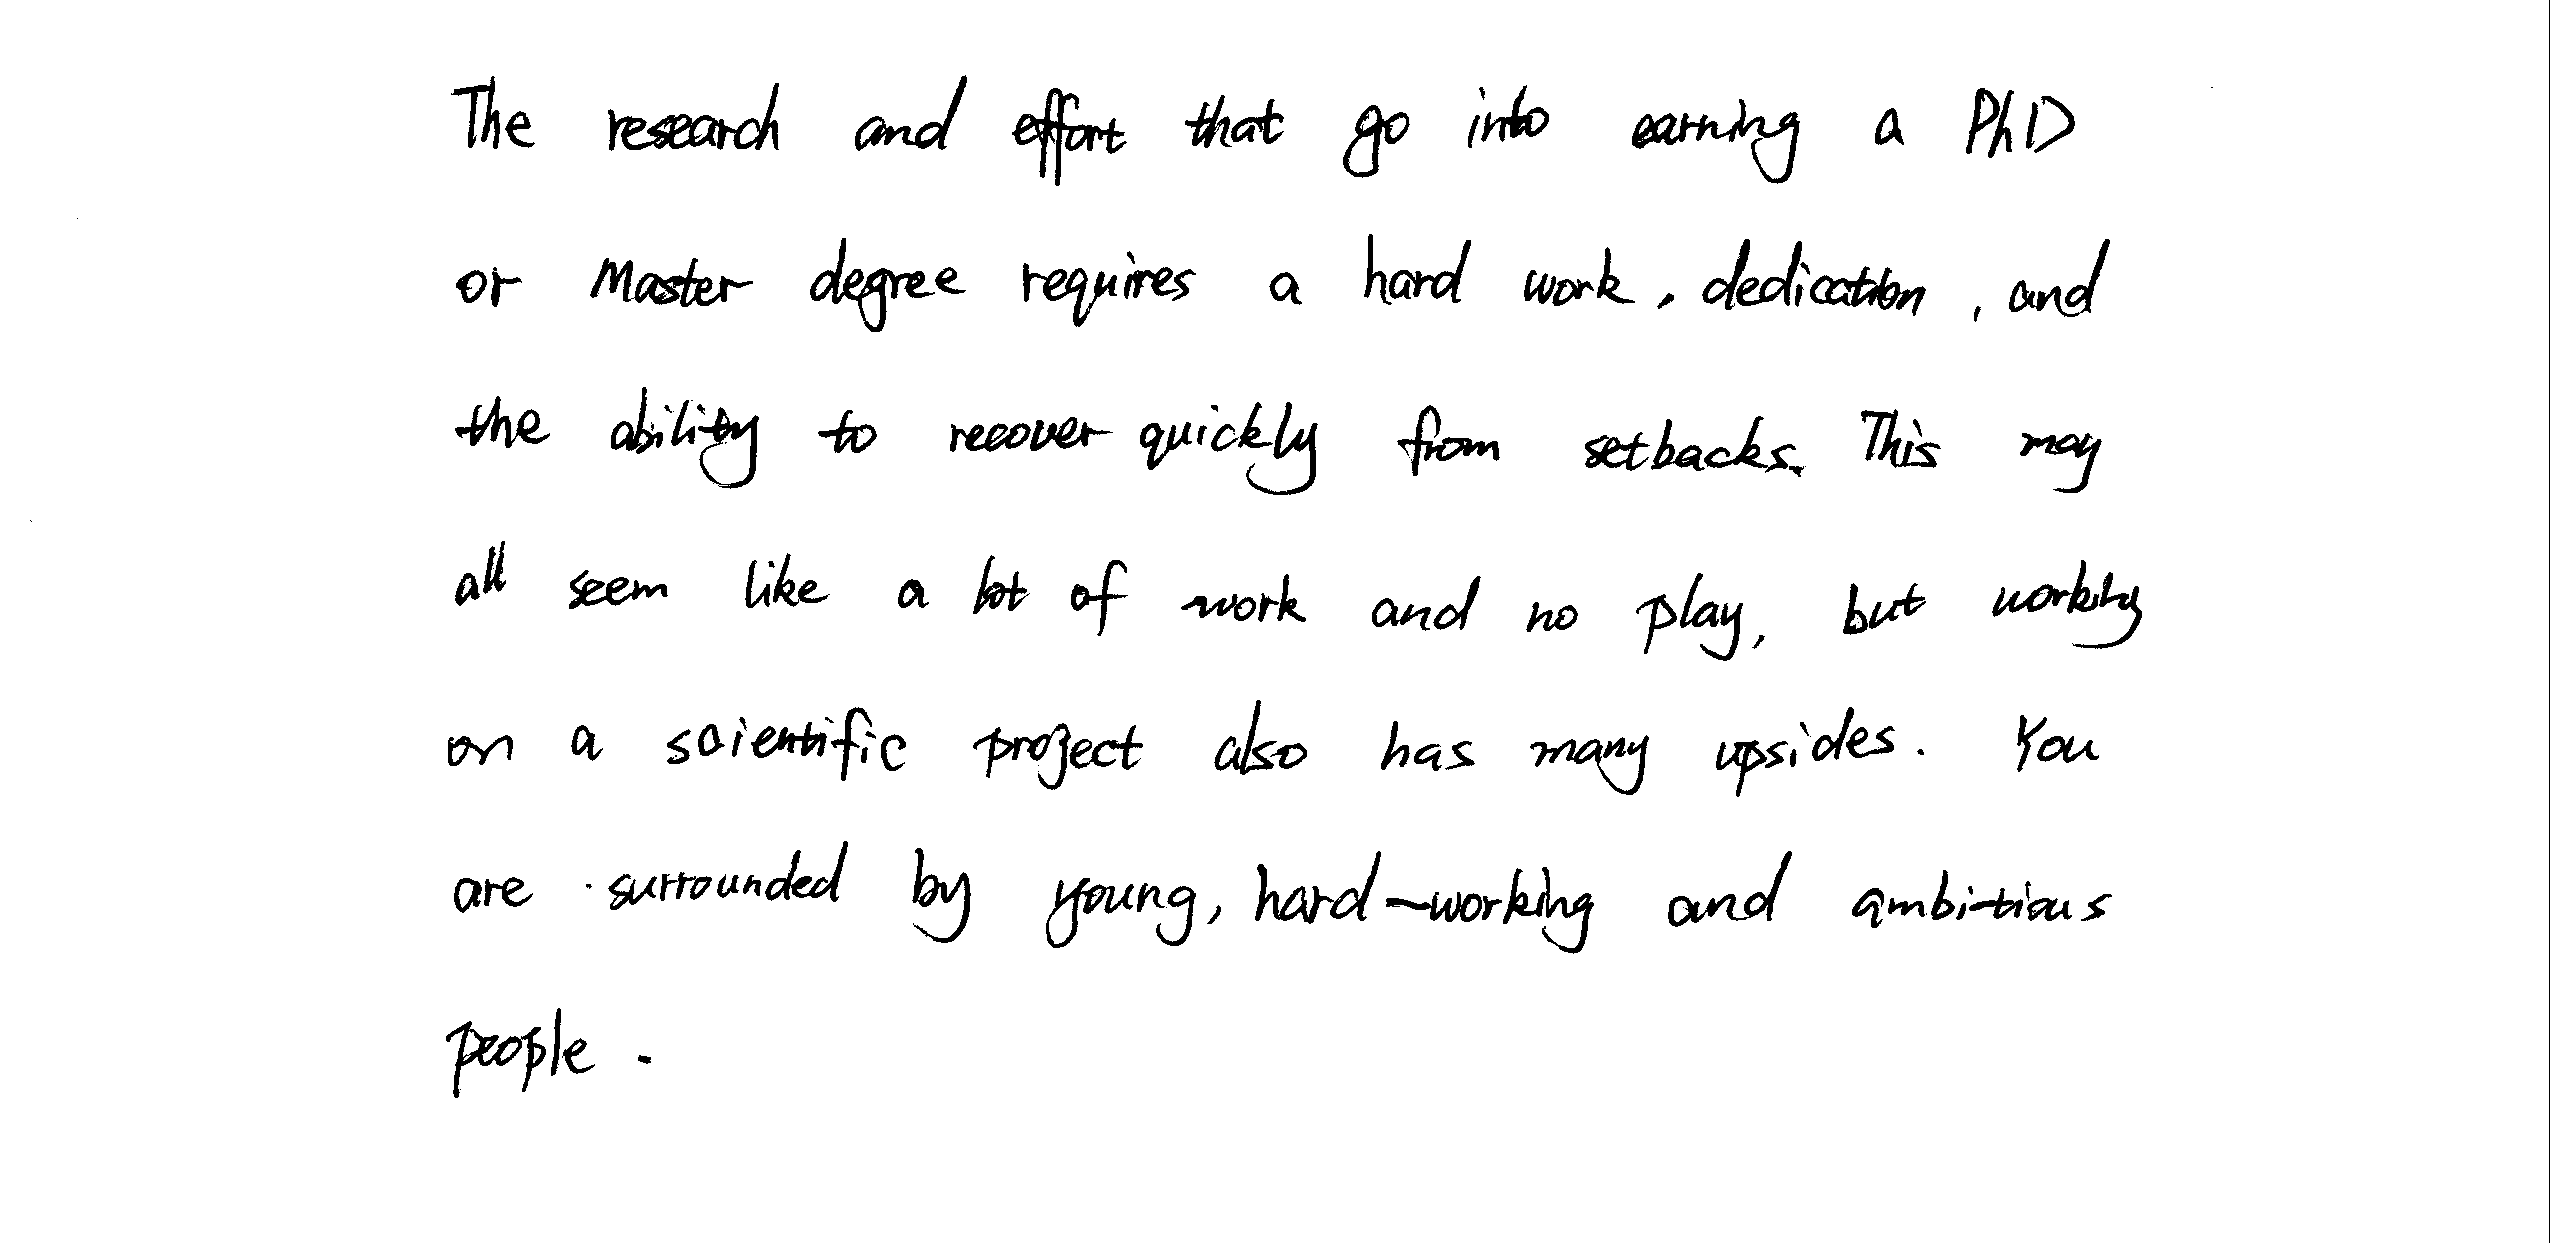 The research and effort that go into earning a PhD
or Master degree requires a hard work, dedication, and
the ability to recover quickly from setbacks. This may
all seem like a lot of work and no play, but working
on a scientific project also has many upsides. You
are surrounded by young, hard-working and ambitious
people.